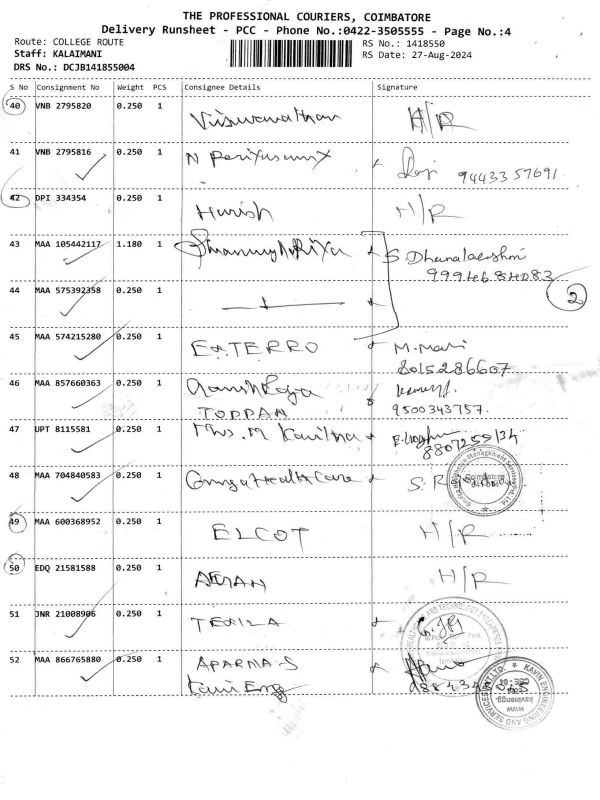 THE PROFESSIONAL COURIERS, COIMBATORE
Delivery Runsheet - PCC - Phone No.:0422-3505555 - Page No.:4
Route: COLLEGE ROUTE RS No.: 1418550
Staff: KALAIMANI RS Date: 27-Aug-2024
DRS No.: DCJB141855004
S No Consignment No Weight PCS Consignee Details Signature
40 VNB 2795820 0.250 1 Viswanathan H/R
41 VNB 2795816 0.250 1 N Periyasamy 9443357691
42 DPI 334354 0.250 1 Harish H/R
43 MAA 105442117 1.180 1 Shanmuga Priya S Dhanalakshmi
9994684083
2
44 MAA 575392358 0.250 1
45 MAA 574215280 0.250 1 EXTERRO M. Mani
8015286607
46 MAA 857660363 0.250 1
TOPPAN 9500343757.
47 UPT 8115581 0.250 1 Mrs. M Kavitha
48 MAA 704840583 0.250 1 Ganga Health Care S. R
Coimbatore
49 MAA 600368952 0.250 1 ELCOT H/R
50 EDQ 21581588 0.250 1 H/R
51 JNR 21008906 0.250 1
52 MAA 866765880 0.250 1 APARNA-S
Kavin Eng
KAVIN ENGINEERING AND SERVICES PVT LTD